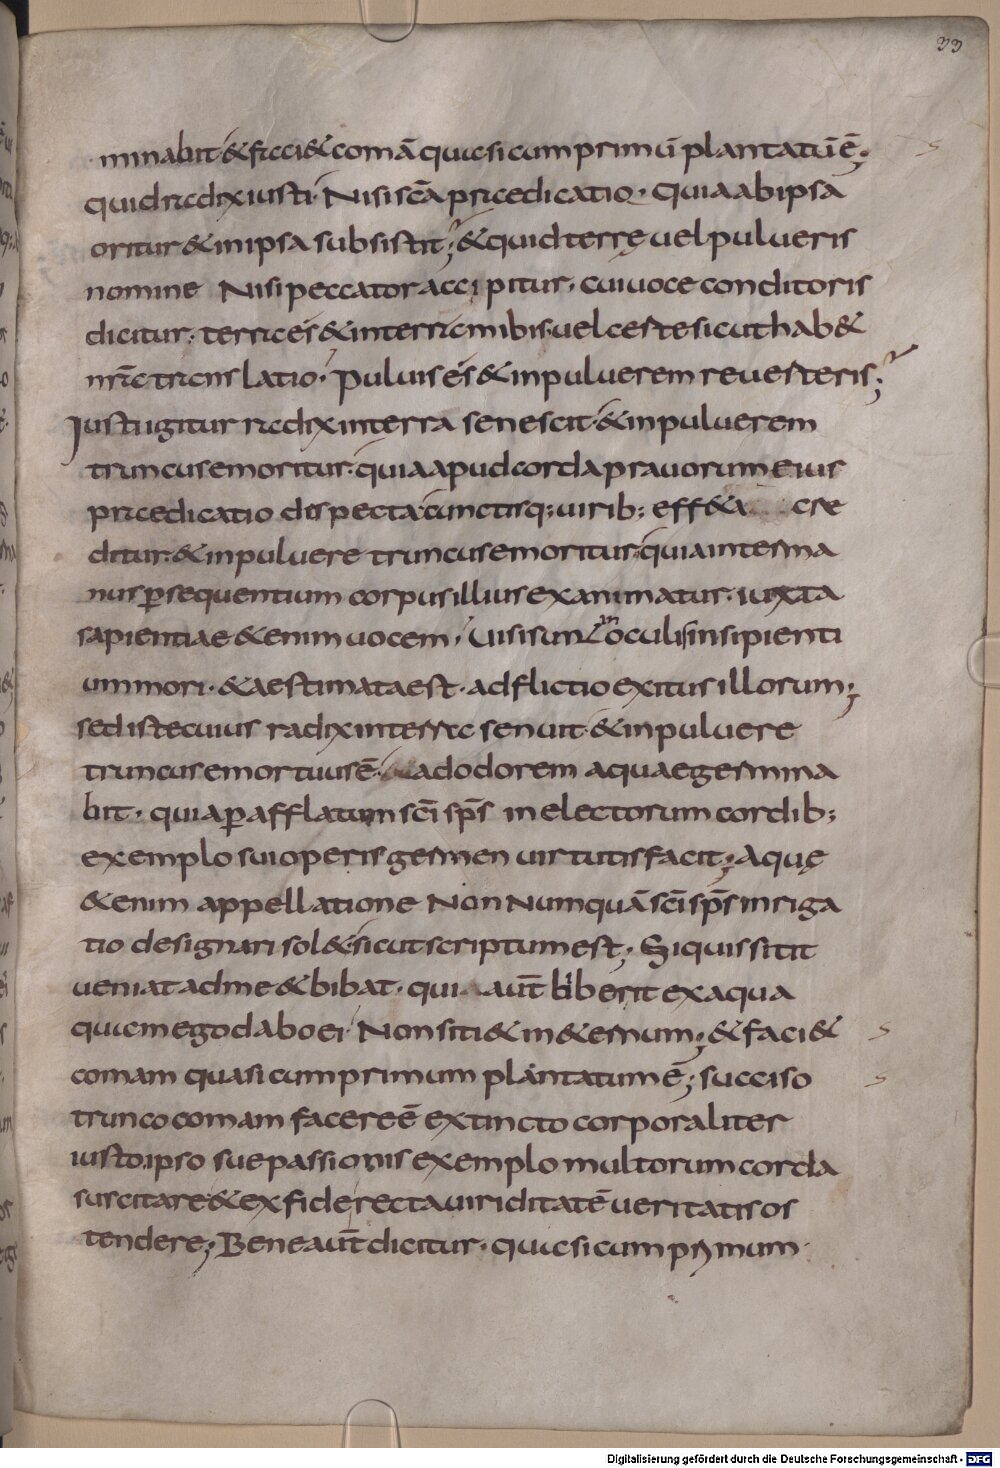 33
minabit & faci& comā quasi cum primū plantatū ē;
quid radix iusti· Nisi scā praedicatio· Quia ab ipsa
oritur & in ipsa subsistit; & quid terrę uel pulueris
nomine Nisi peccator accipitur· cui uoce conditoris
dicitur· terra es & in terram ibis· uel certe sicut hab&
nrā translatio· Puluis es & in puluerem reuerteris;
Iusti igitur radix in terra senescit· & in puluerem
truncus emoritur· quia apud corda prauorum eius
praedicatio dispecta cunctisq; uirib; eff&a cre
ditur· & in puluere truncus emoritur· quia inter ma
nus ꝑsequentium corpus illius exanimatur· iuxta
sapientiae &enim uocem· Uisi sunt oculis insipienti
um mori· & aestimata est· adflictio exitus illorum;
sed iste cuius radix in terra senuit & in puluere
truncus emortuus ē· ad odorem aquae germina
bit· quia ꝑ afflatum scī sps̄ in electorum cordib;
exemplo sui operis germen uirtutis facit; Aquę
&enim appellatione Non Numquā scī sps̄ inriga
tio designari sol& sicut scriptum est; Si quis sitit
ueniat ad me & bibat· qui aut̄ biberit ex aqua
quam ego dabo ei· Non siti& in &ernum; & faci&
comam quasi cum primum plantatum ē; succiso
trunco comam facere ē extincto corporaliter
iusto ipso suę passionis exemplo multorum corda
suscitare & ex fide recta uiriditatē ueritatis os
tendere; Bene aut̄ dicitur· quasi cum primum
Digitalisierung gefördert durch die Deutsche Forschungsgemeinschaft - DFG